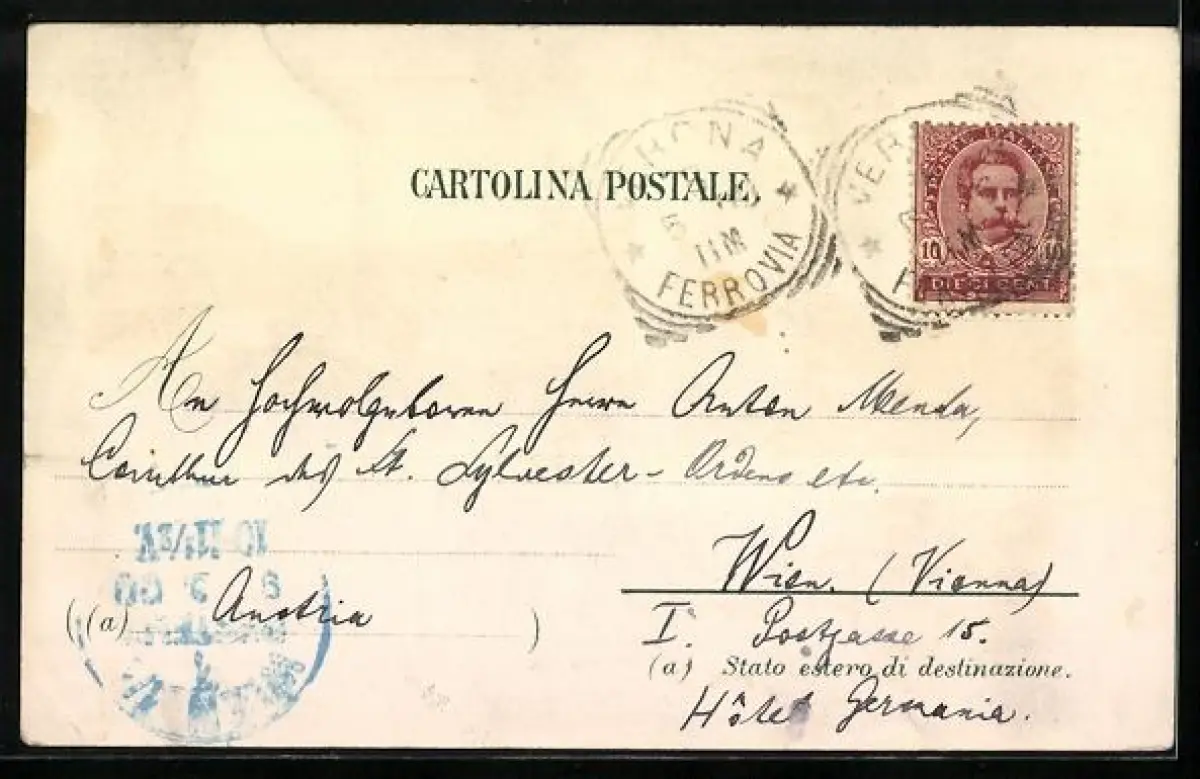 CARTOLINA POSTALE.
VERONA
5
11M
FERROVIA
VER
POSTE ITALIANE
10 10
DIECI CENT.
An Hochwolgeboren Herrn Anton Menda,
des St. Sylvester-Ordens etc.
Wien. (Vienna)
(a) Austria
I. Postgasse 15.
(a) Stato estero di destinazione.
Hôtel Germania.